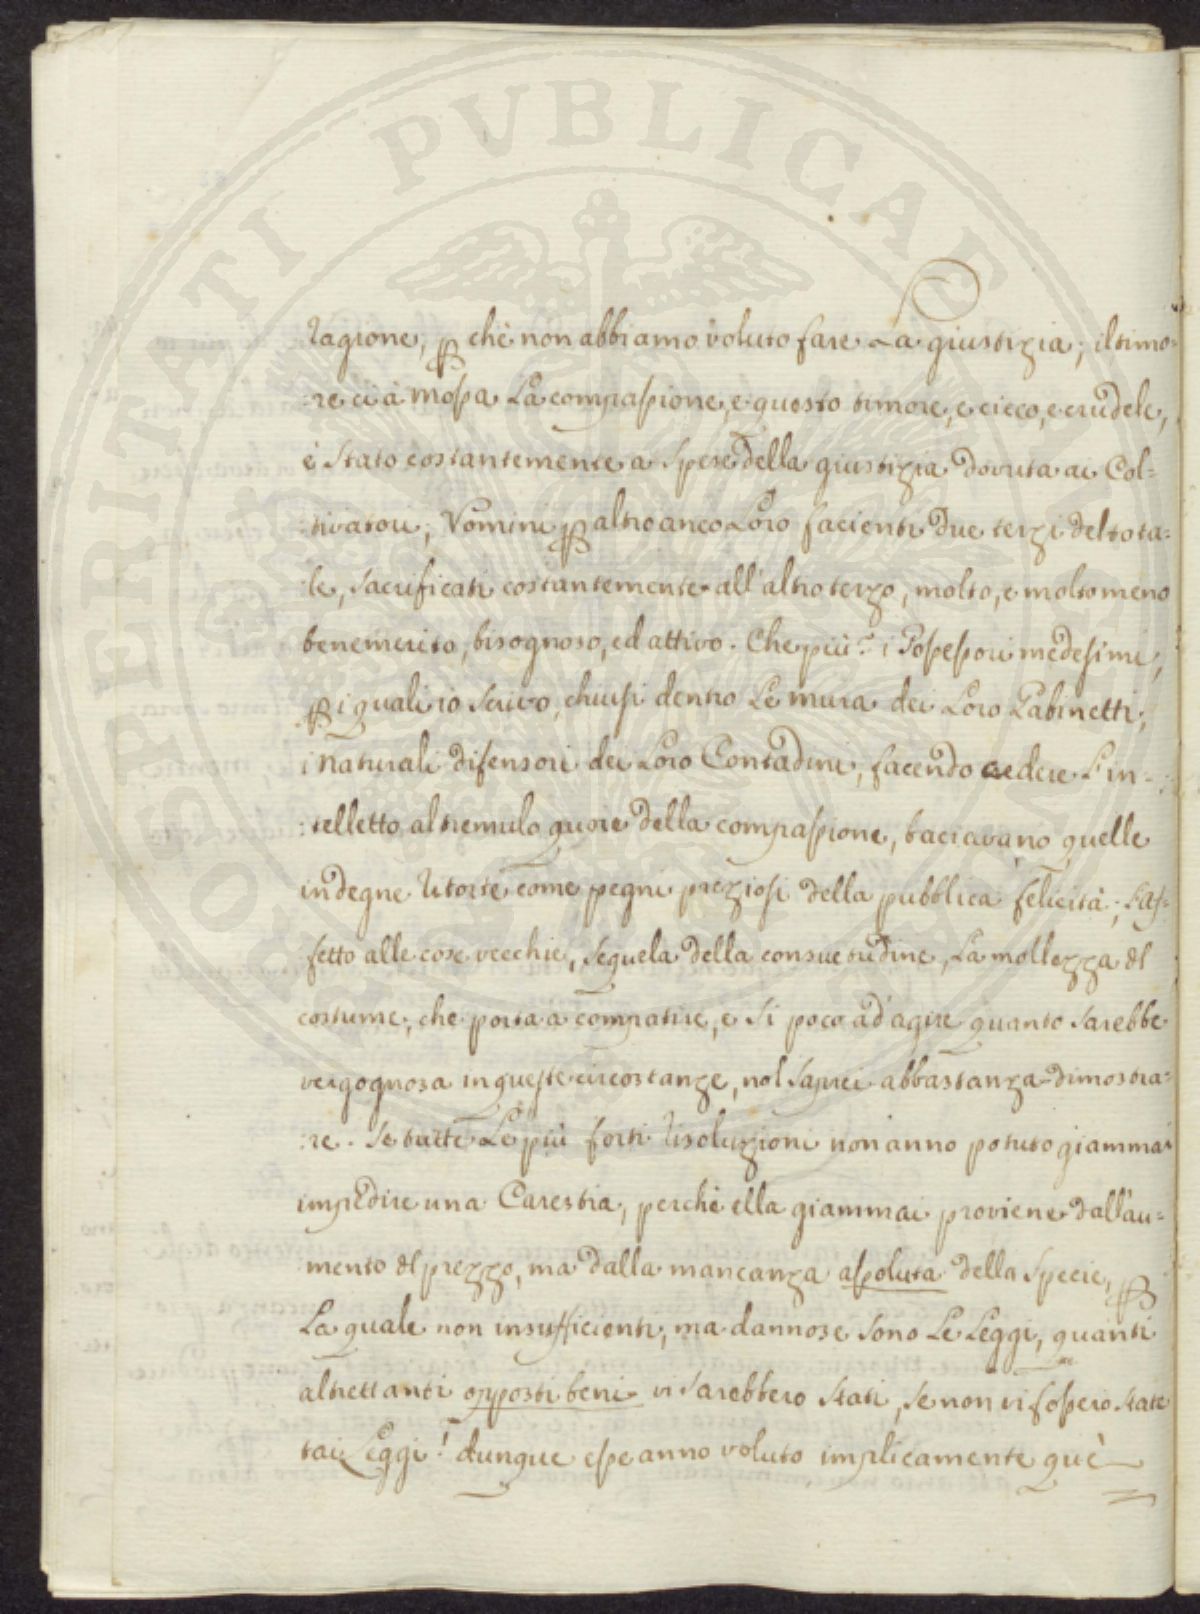 PROSPERITATI PUBLICAE AUGENDAE
ragione, p chè non abbiamo voluto fare La giustizia; il timo=
:re ci à mossa La compassione, e questo timore, e cieco, e crudele,
è stato costantemente a spese della giustizia dovuta ai Col=
:tivatori; Vomini p altro anco Loro facienti due terzi del tota=
:le, sacrificati costantemente all'altro terzo, molto, e molto meno
benemerito, bisognoso, ed attivo. Che più? i Possessori medesimi,
p i quali io scrivo, chiusi dentro Le mura dei Loro Gabinetti,
i naturali difensori dei Loro Contadini, facendo cedere L'in=
:telletto al tremulo quore della compassione, baciavano quelle
indegne ritorte come pegni preziosi della pubblica felicità; L'af=
fetto alle cose vecchie, sequela della consuetudine, La mollezza del
costume, che porta a compatire, e si poco ad agire quanto sarebbe
vergognosa in queste circostanze, nol saprei abbastanza dimostra=
:re. Se tutte Le più forti risoluzioni non anno potuto giammai
impedire una Carestia, perchè ella giammai proviene dall'au=
mento del prezzo, ma dalla mancanza assoluta della specie, p
La quale non insufficienti, ma dannose sono Le Leggi, quanti
altrettanti opposti beni vi sarebbero stati, se non vi fossero state
tai Leggi! dunque esse anno voluto implicamente què